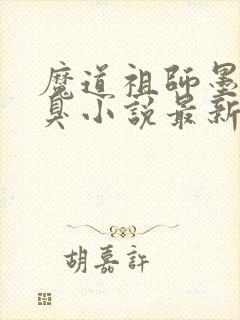 魔道祖師墨
臭小說最新
胡嘉許